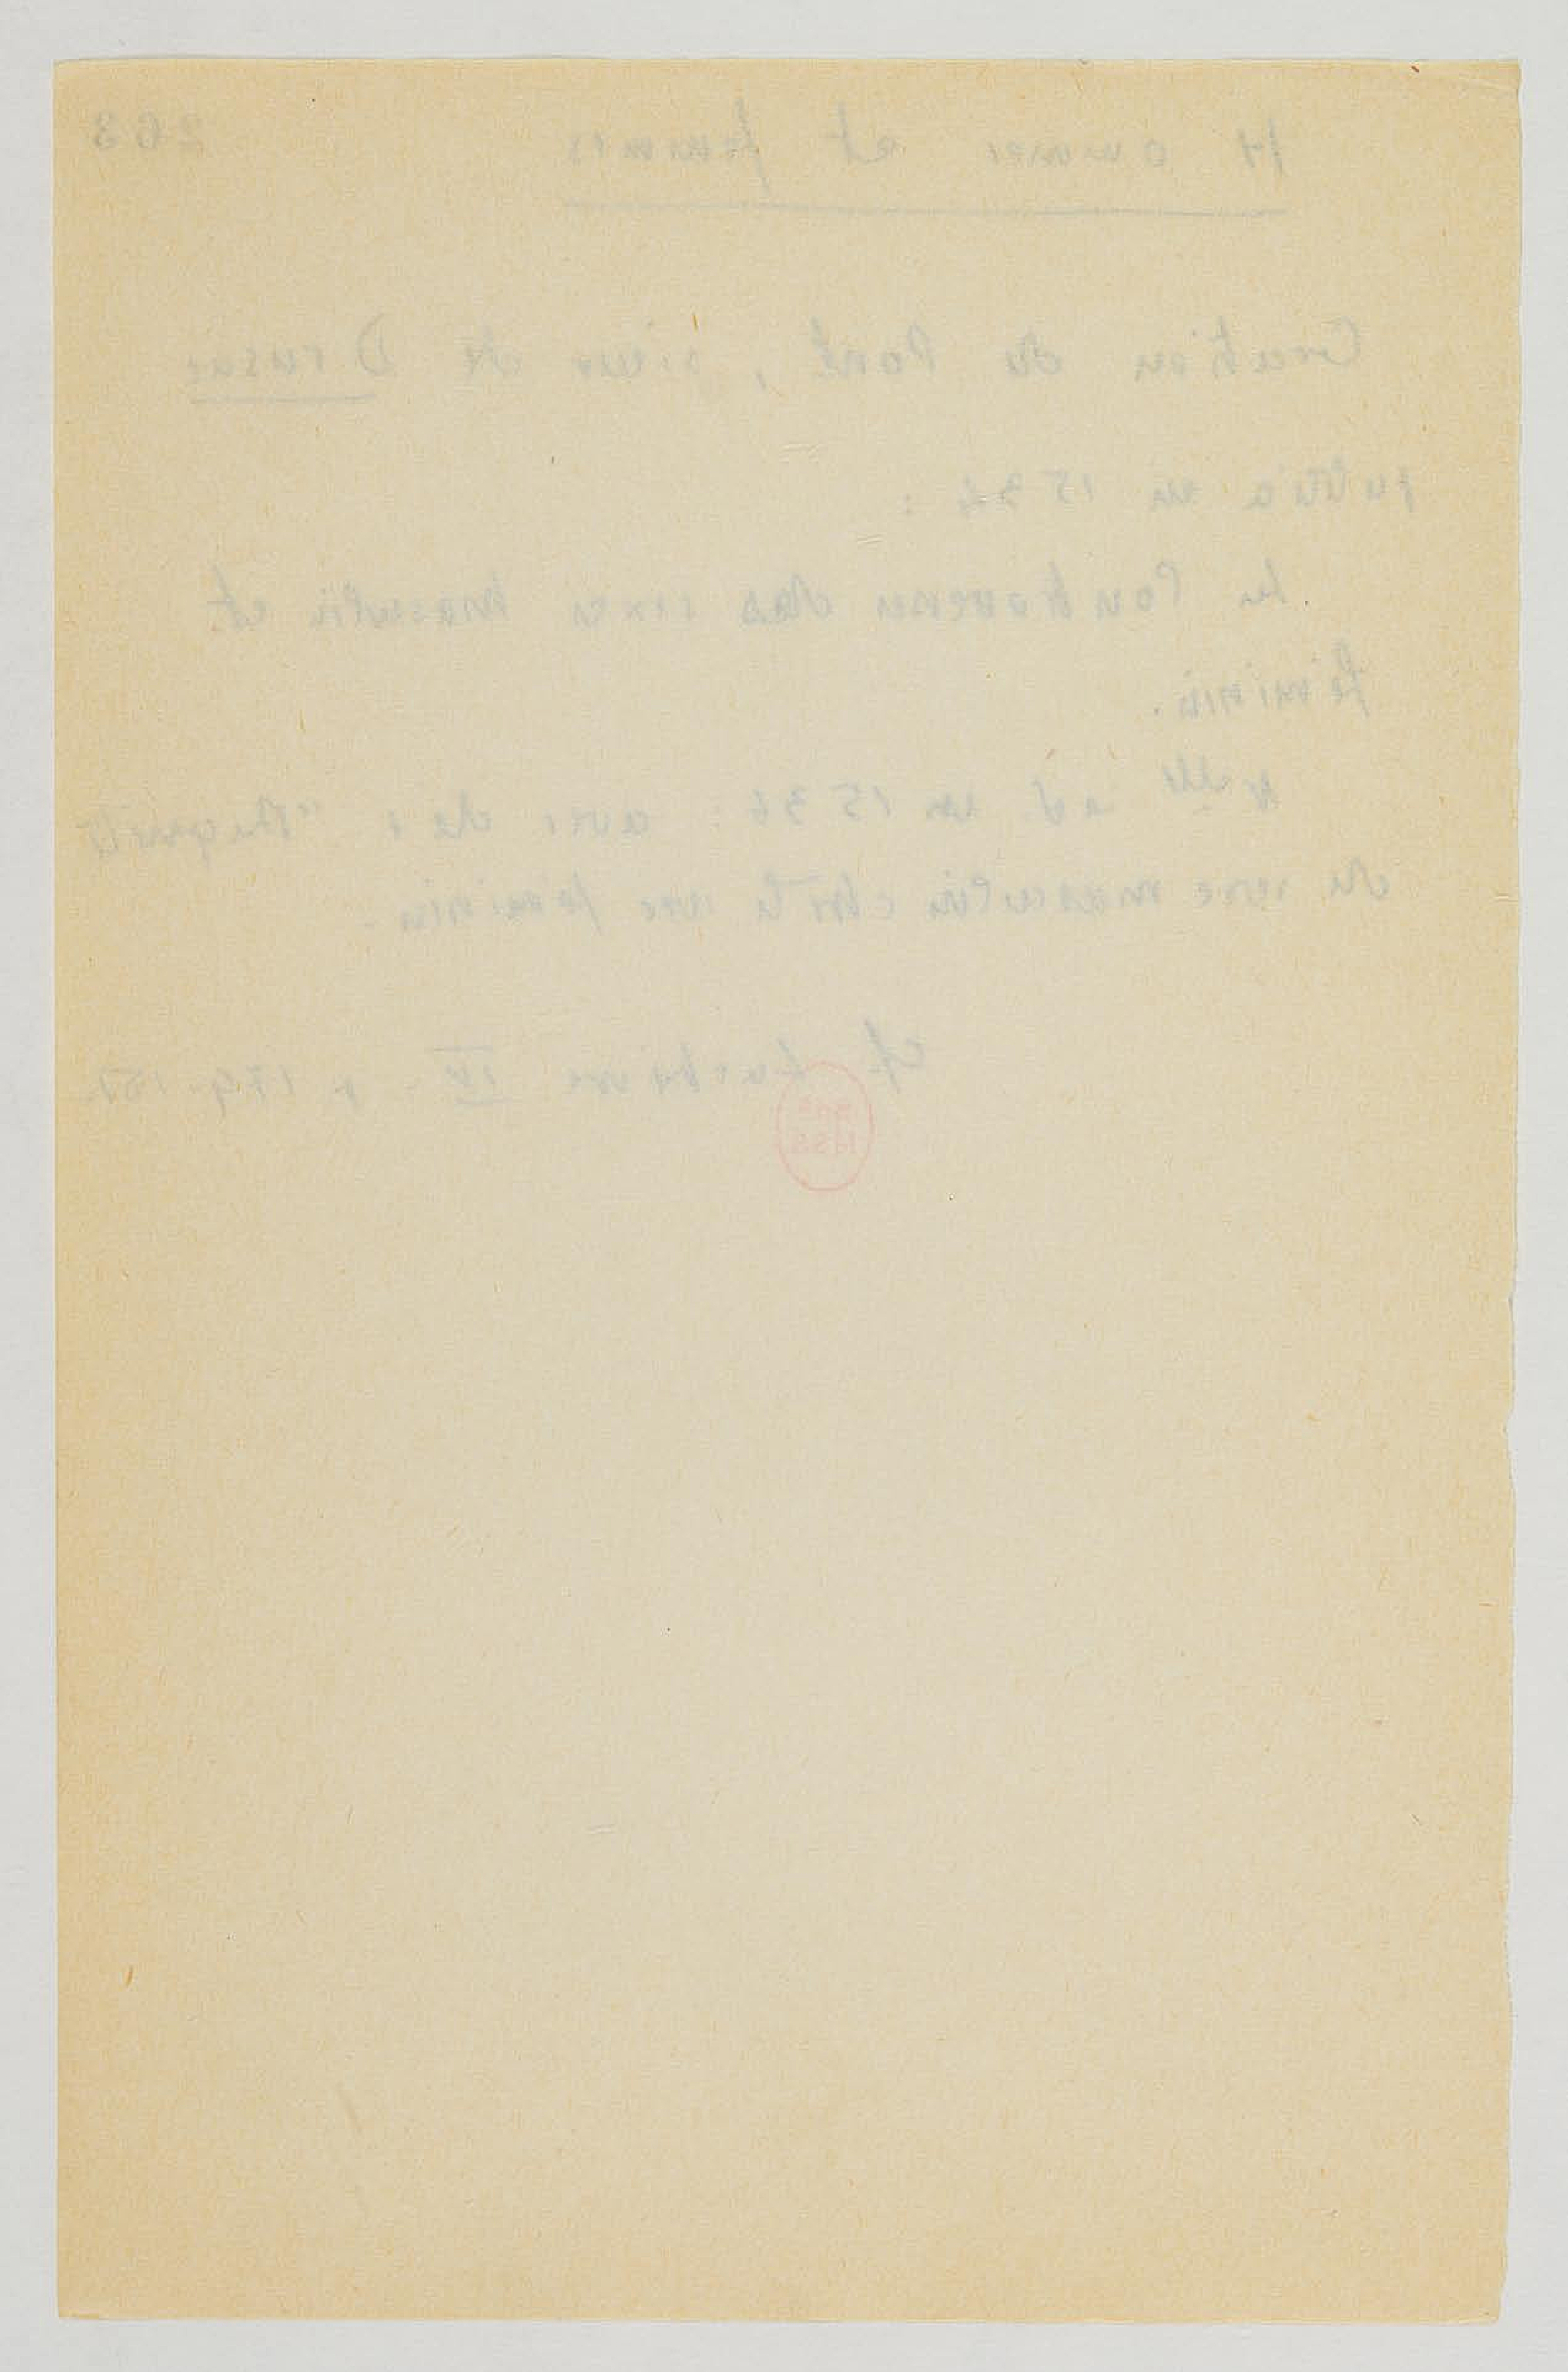 263
Hommes et femmes
Gratien du Pont, sieur de Drusac
publia en 1534 :
les Controverses des sexes masculin et
féminin.
Nlle éd. en 1536 : avec des : "Requête
du sexe masculin contre le sexe féminin.
cf. IV p 179-181.